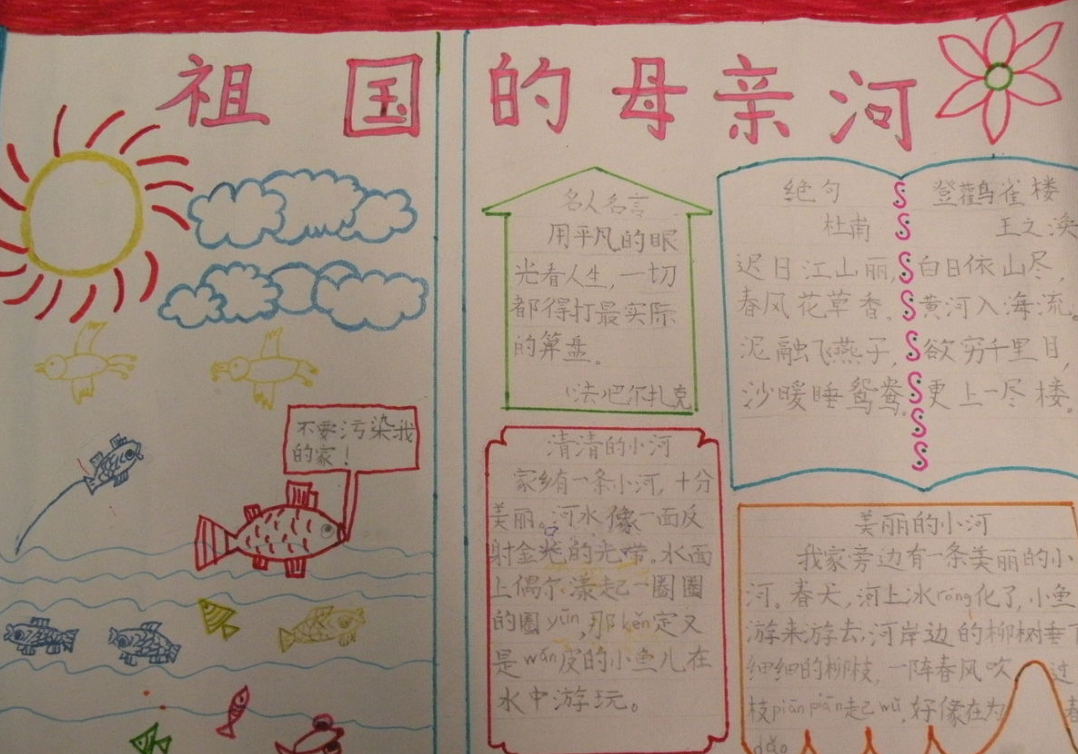 祖国的母亲河
不要污染我
的家！
名人名言
用平凡的眼
光看人生，一切
都得打最实际
的算盘。
（法）巴尔扎克
清清的小河
家乡有一条小河，十分
美丽。河水像一面反
射金光的光带。水面
上偶尔漾起一圈圈
的圈yūn，那kěn定又
是wán皮的小鱼儿在
水中游玩。
绝句
杜甫
迟日江山丽，
春风花草香。
泥融飞燕子，
沙暖睡鸳鸯。
登鹳雀楼
王之涣
白日依山尽，
黄河入海流。
欲穷千里目，
更上一尽楼。
美丽的小河
我家旁边有一条美丽的小
河。春天，河上冰róng化了，小鱼
游来游去，河岸边的柳树垂下
细细的柳枝，一阵春风吹过
枝piān piān起wǔ，好像在为春